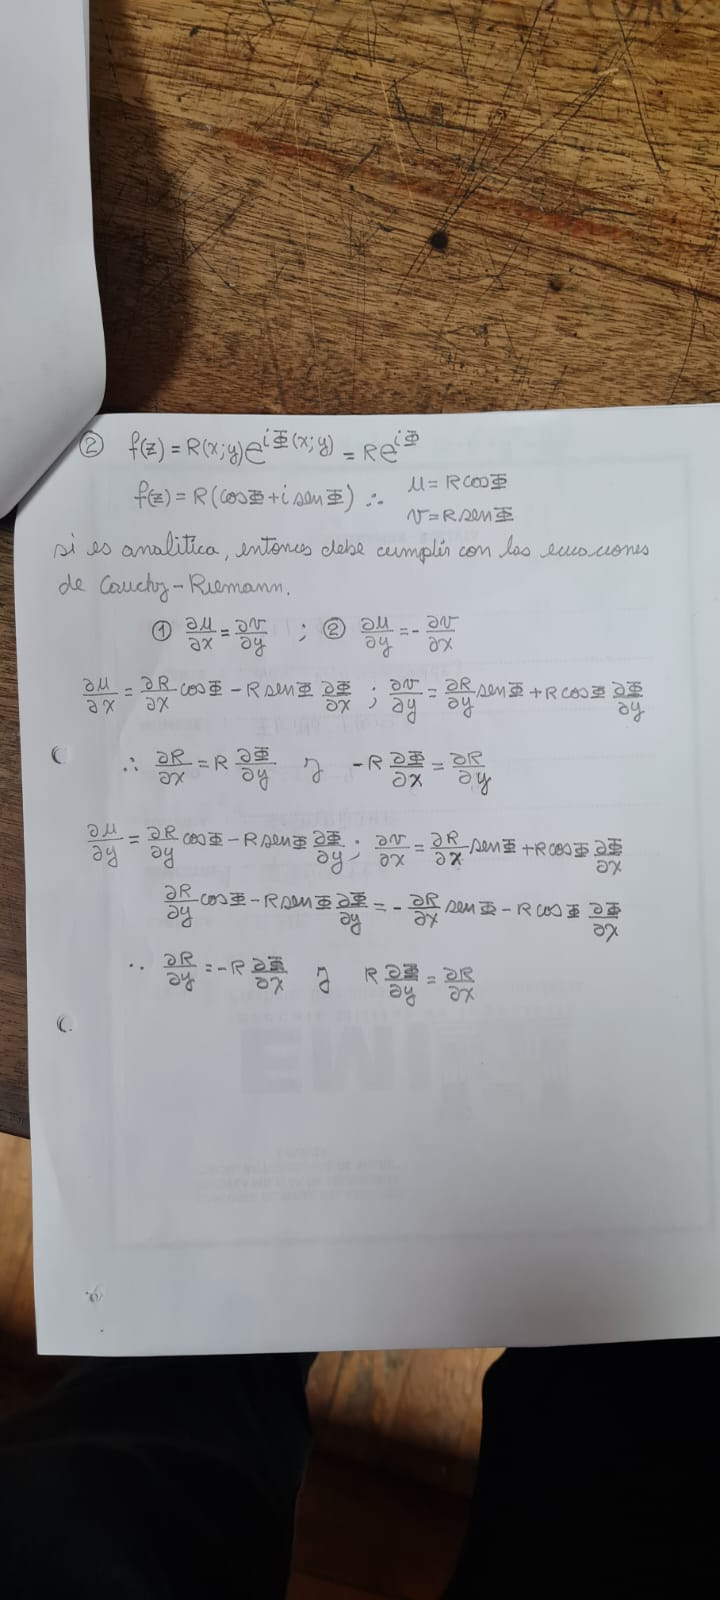 ② f(z) = R(x;y)e^{iΦ(x;y)} = Re^{iΦ}
f(z) = R(cosΦ + i senΦ) ∴ μ = R cosΦ
v = R senΦ
si es analitica, entonces debe cumplir con las ecuaciones
de Cauchy-Riemann.
① ∂μ/∂x = ∂v/∂y ; ② ∂μ/∂y = - ∂v/∂x
∂μ/∂x = ∂R/∂x cosΦ - R senΦ ∂Φ/∂x ; ∂v/∂y = ∂R/∂y senΦ + R cosΦ ∂Φ/∂y
∴ ∂R/∂x = R ∂Φ/∂y y -R ∂Φ/∂x = ∂R/∂y
∂μ/∂y = ∂R/∂y cosΦ - R senΦ ∂Φ/∂y ; ∂v/∂x = ∂R/∂x senΦ + R cosΦ ∂Φ/∂x
∂R/∂y cosΦ - R senΦ ∂Φ/∂y = - ∂R/∂x senΦ - R cosΦ ∂Φ/∂x
∴ ∂R/∂y = -R ∂Φ/∂x y R ∂Φ/∂y = ∂R/∂x